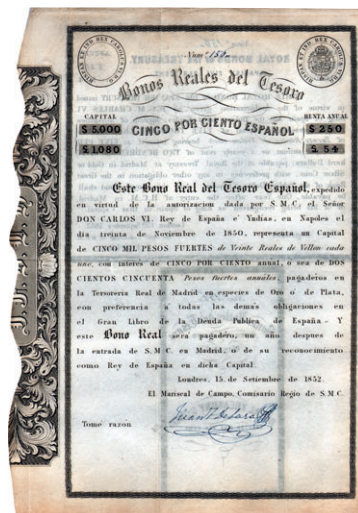 Num.º 152.
Bonos Reales del Tesoro
CAPITAL RENTA ANUAL
$ 5,000 CINCO POR CIENTO ESPAÑOL $ 250
£ 1080 £ 54
Este Bono Real del Tesoro Español, expedido
en virtud de la autorizacion dada por S.M.C. el Señor
DON CARLOS VI. Rey de España é Yndias, en Napoles el
dia treinta de Noviembre de 1850, representa un Capital
de CINCO MIL PESOS FUERTES de Veinte Reales de Vellon cada
uno, con interés de CINCO POR CIENTO anual, ó sea de DOS
CIENTOS CINCUENTA Pesos fuertes annales, pagaderos en
la Tersoreria Real de Madrid en especies de Oro ó de Plata,
con preferencia à todas las demas obligaciones en
el Gran Libro de la Deuda Publica de España - Y
este Bono Real sera pagadero, un año despues de
la entrada de S.M.C. en Madrid, ó de su reconocimiento
como Rey de España en dicha Capital.
Londres, 15. de Setiembre de 1852.
El Mariscal de Campo, Comisario Regio de S.M.C.
Tomé razon